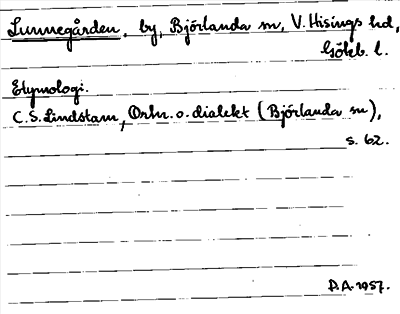 Lunnegården, by, Björlanda sn, V. Hisings hd,
Göteb. l.
Etymologi.
C. S. Lindstam, Ortn. o. dialekt (Björlanda sn),
s. 62.
P.A. 1957.